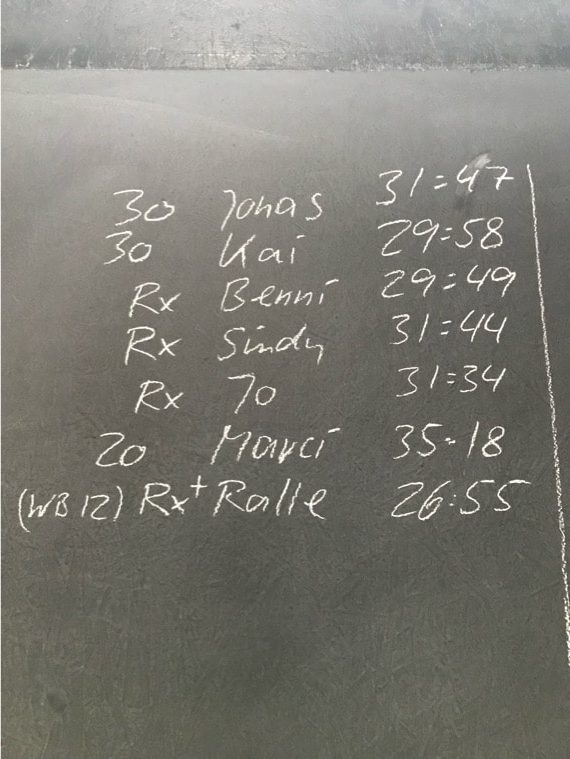 30 Jonas 31:47
30 Kai 29:58
Rx Benni 29:49
Rx Sindy 31:44
Rx Jo 31:34
20 Marci 35:18
(WB 12) Rx+ Ralle 26:55